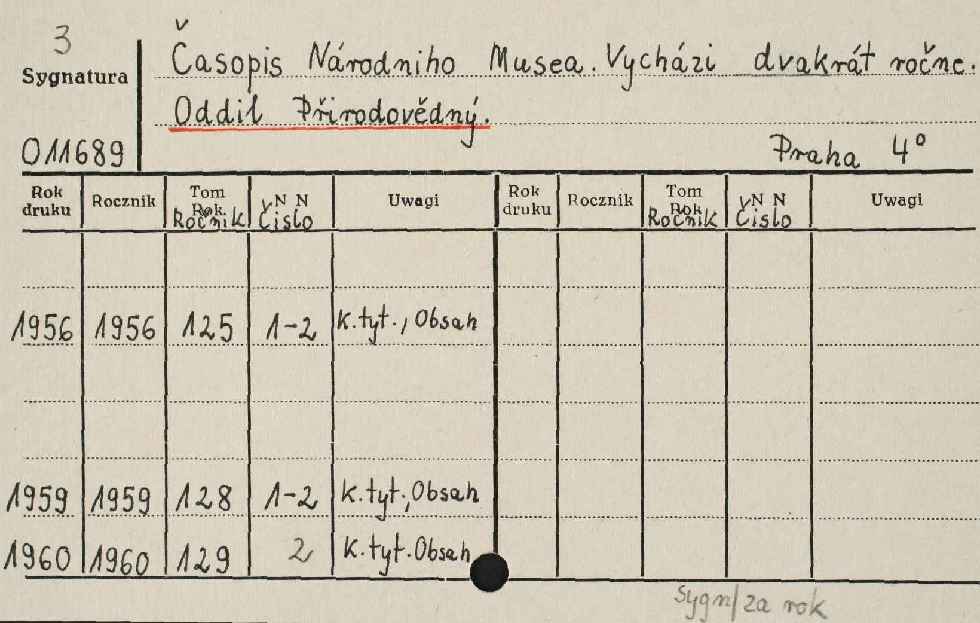 3
Sygnatura
Časopis Národniho Musea. Vycházi dvakrát ročne.
Oddil Přirodovědný.
011689
Praha 4°
Rok druku Rocznik Tom Rok Ročnik N N Čislo Uwagi Rok druku Rocznik Tom Rok Ročnik N N Čislo Uwagi
1956 1956 125 1-2 K.tyt., Obsah
1959 1959 128 1-2 K.tyt., Obsah
1960 1960 129 2 K.tyt. Obsah
Sygn/za rok